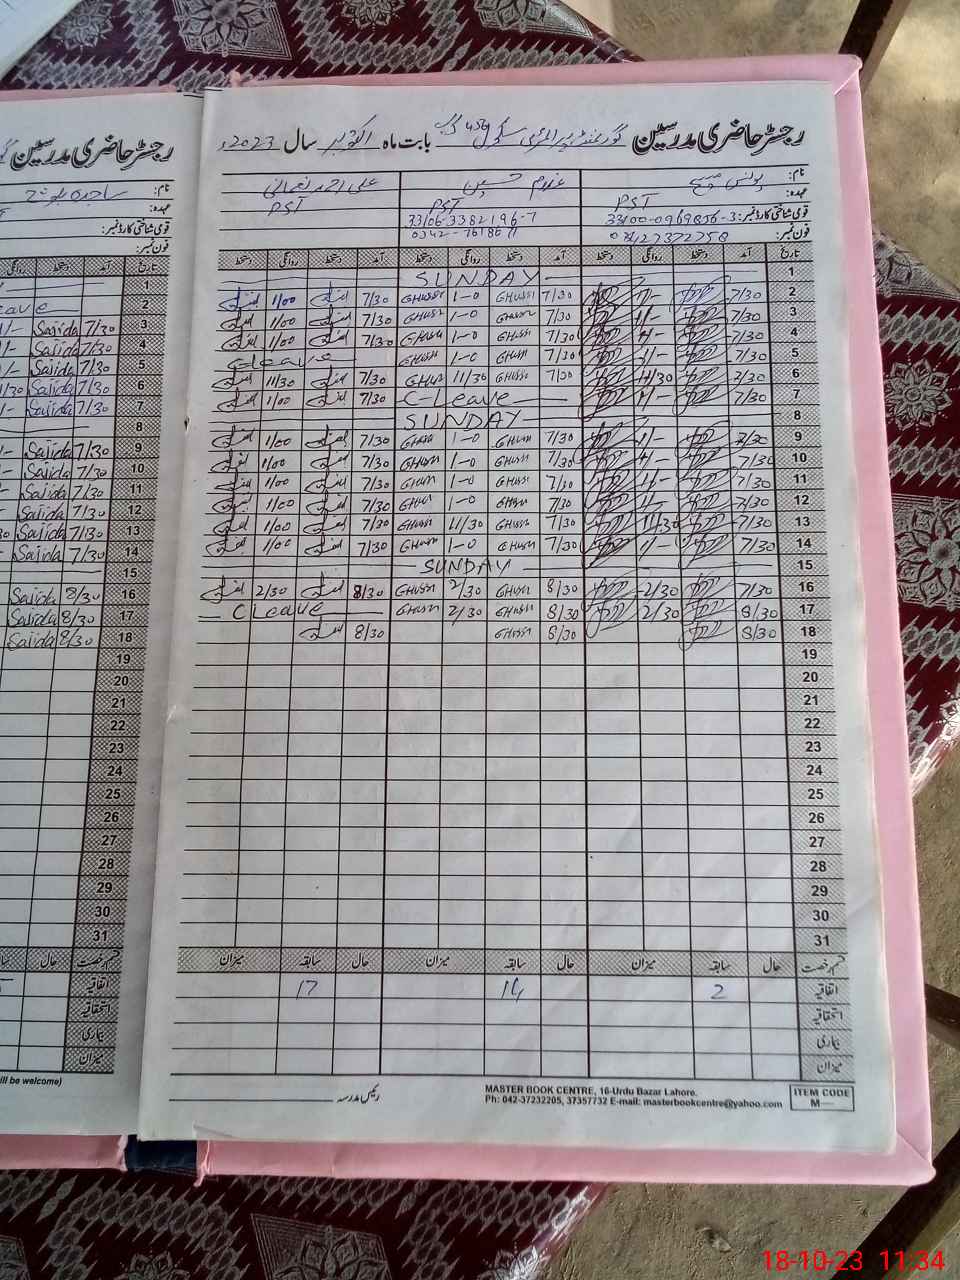 رجسٹر حاضری مدرسین گورنمنٹ پرائمری سکول 456 گ ب بابت ماہ اکتوبر سال 2023ء
نام: یونس مسیح غلام حسین علی احمد نعمانی
عہدہ: PST PST PST
قومی شناختی کارڈ نمبر: 33100-0969856-3 33106-3382196-7
فون نمبر:
تاریخ آمد دستخط روانگی دستخط آمد دستخط روانگی دستخط آمد دستخط روانگی دستخط
1 SUNDAY
2 7/30 1/- 7/30 GHUSSN 1-0 GHUSSN 7/30 1/00
3 7/30 1/- 7/30 GHUSSN 1-0 GHUSSN 7/30 1/00
4 7/30 1/- 7/30 GHUSSN 1-0 GHUSSN 7/30 1/00
5 7/30 1/- 7/30 GHUSSN 1-0 GHUSSN C-Leave
6 7/30 11/30 7/30 GHUSSN 11/30 GHUSSN 7/30 11/30
7 7/30 1/- C-Leave 7/30 1/00
8 SUNDAY
9 7/30 1/- 7/30 GHUSSN 1-0 GHUSSN 7/30 1/00
10 7/30 1/- 7/30 GHUSSN 1-0 GHUSSN 7/30 1/00
11 7/30 1/- 7/30 GHUSSN 1-0 GHUSSN 7/30 1/00
12 7/30 1/- 7/30 GHUSSN 1-0 GHUSSN 7/30 1/00
13 7/30 11/30 7/30 GHUSSN 11/30 GHUSSN 7/30 1/00
14 7/30 1/- 7/30 GHUSSN 1-0 GHUSSN 7/30 1/00
15 SUNDAY
16 7/30 2/30 8/30 GHUSSN 2/30 GHUSSN 8/30 2/30
17 8/30 2/30 8/30 GHUSSN 2/30 GHUSSN C Leave
18 8/30 8/30 GHUSSN 8/30
19
20
21
22
23
24
25
26
27
28
29
30
31
قسم رخصت حال سابقہ میزان حال سابقہ میزان حال سابقہ میزان
اتفاقیہ 2 14 17
استحقاقیہ
بیماری
میزان
رئیس مدرسہ
MASTER BOOK CENTRE, 16-Urdu Bazar Lahore.
Ph: 042-37232205, 37357732 E-mail: masterbookcentre@yahoo.com
ITEM CODE
M—
رجسٹر حاضری مدرسین
نام: ساجدہ
عہدہ:
قومی شناختی کارڈ نمبر:
فون نمبر:
تاریخ آمد دستخط روانگی
1
2 eave
3 7/30 Sajida 1/-
4 7/30 Sajida 1/-
5 7/30 Sajida 1/-
6 7/30 Sajida 1/30
7 7/30 Sajida 1/-
8
9 7/30 Sajida
10 7/30 Sajida
11 7/30 Sajida
12 7/30 Sajida
13 7/30 Sajida
14 7/30 Sajida
15
16 8/30 Sajida
17 8/30 Sajida
18 8/30 Sajida
19
20
21
22
23
24
25
26
27
28
29
30
31
قسم رخصت حال
اتفاقیہ
استحقاقیہ
بیماری
میزان
ill be welcome)
18-10-23 11:34